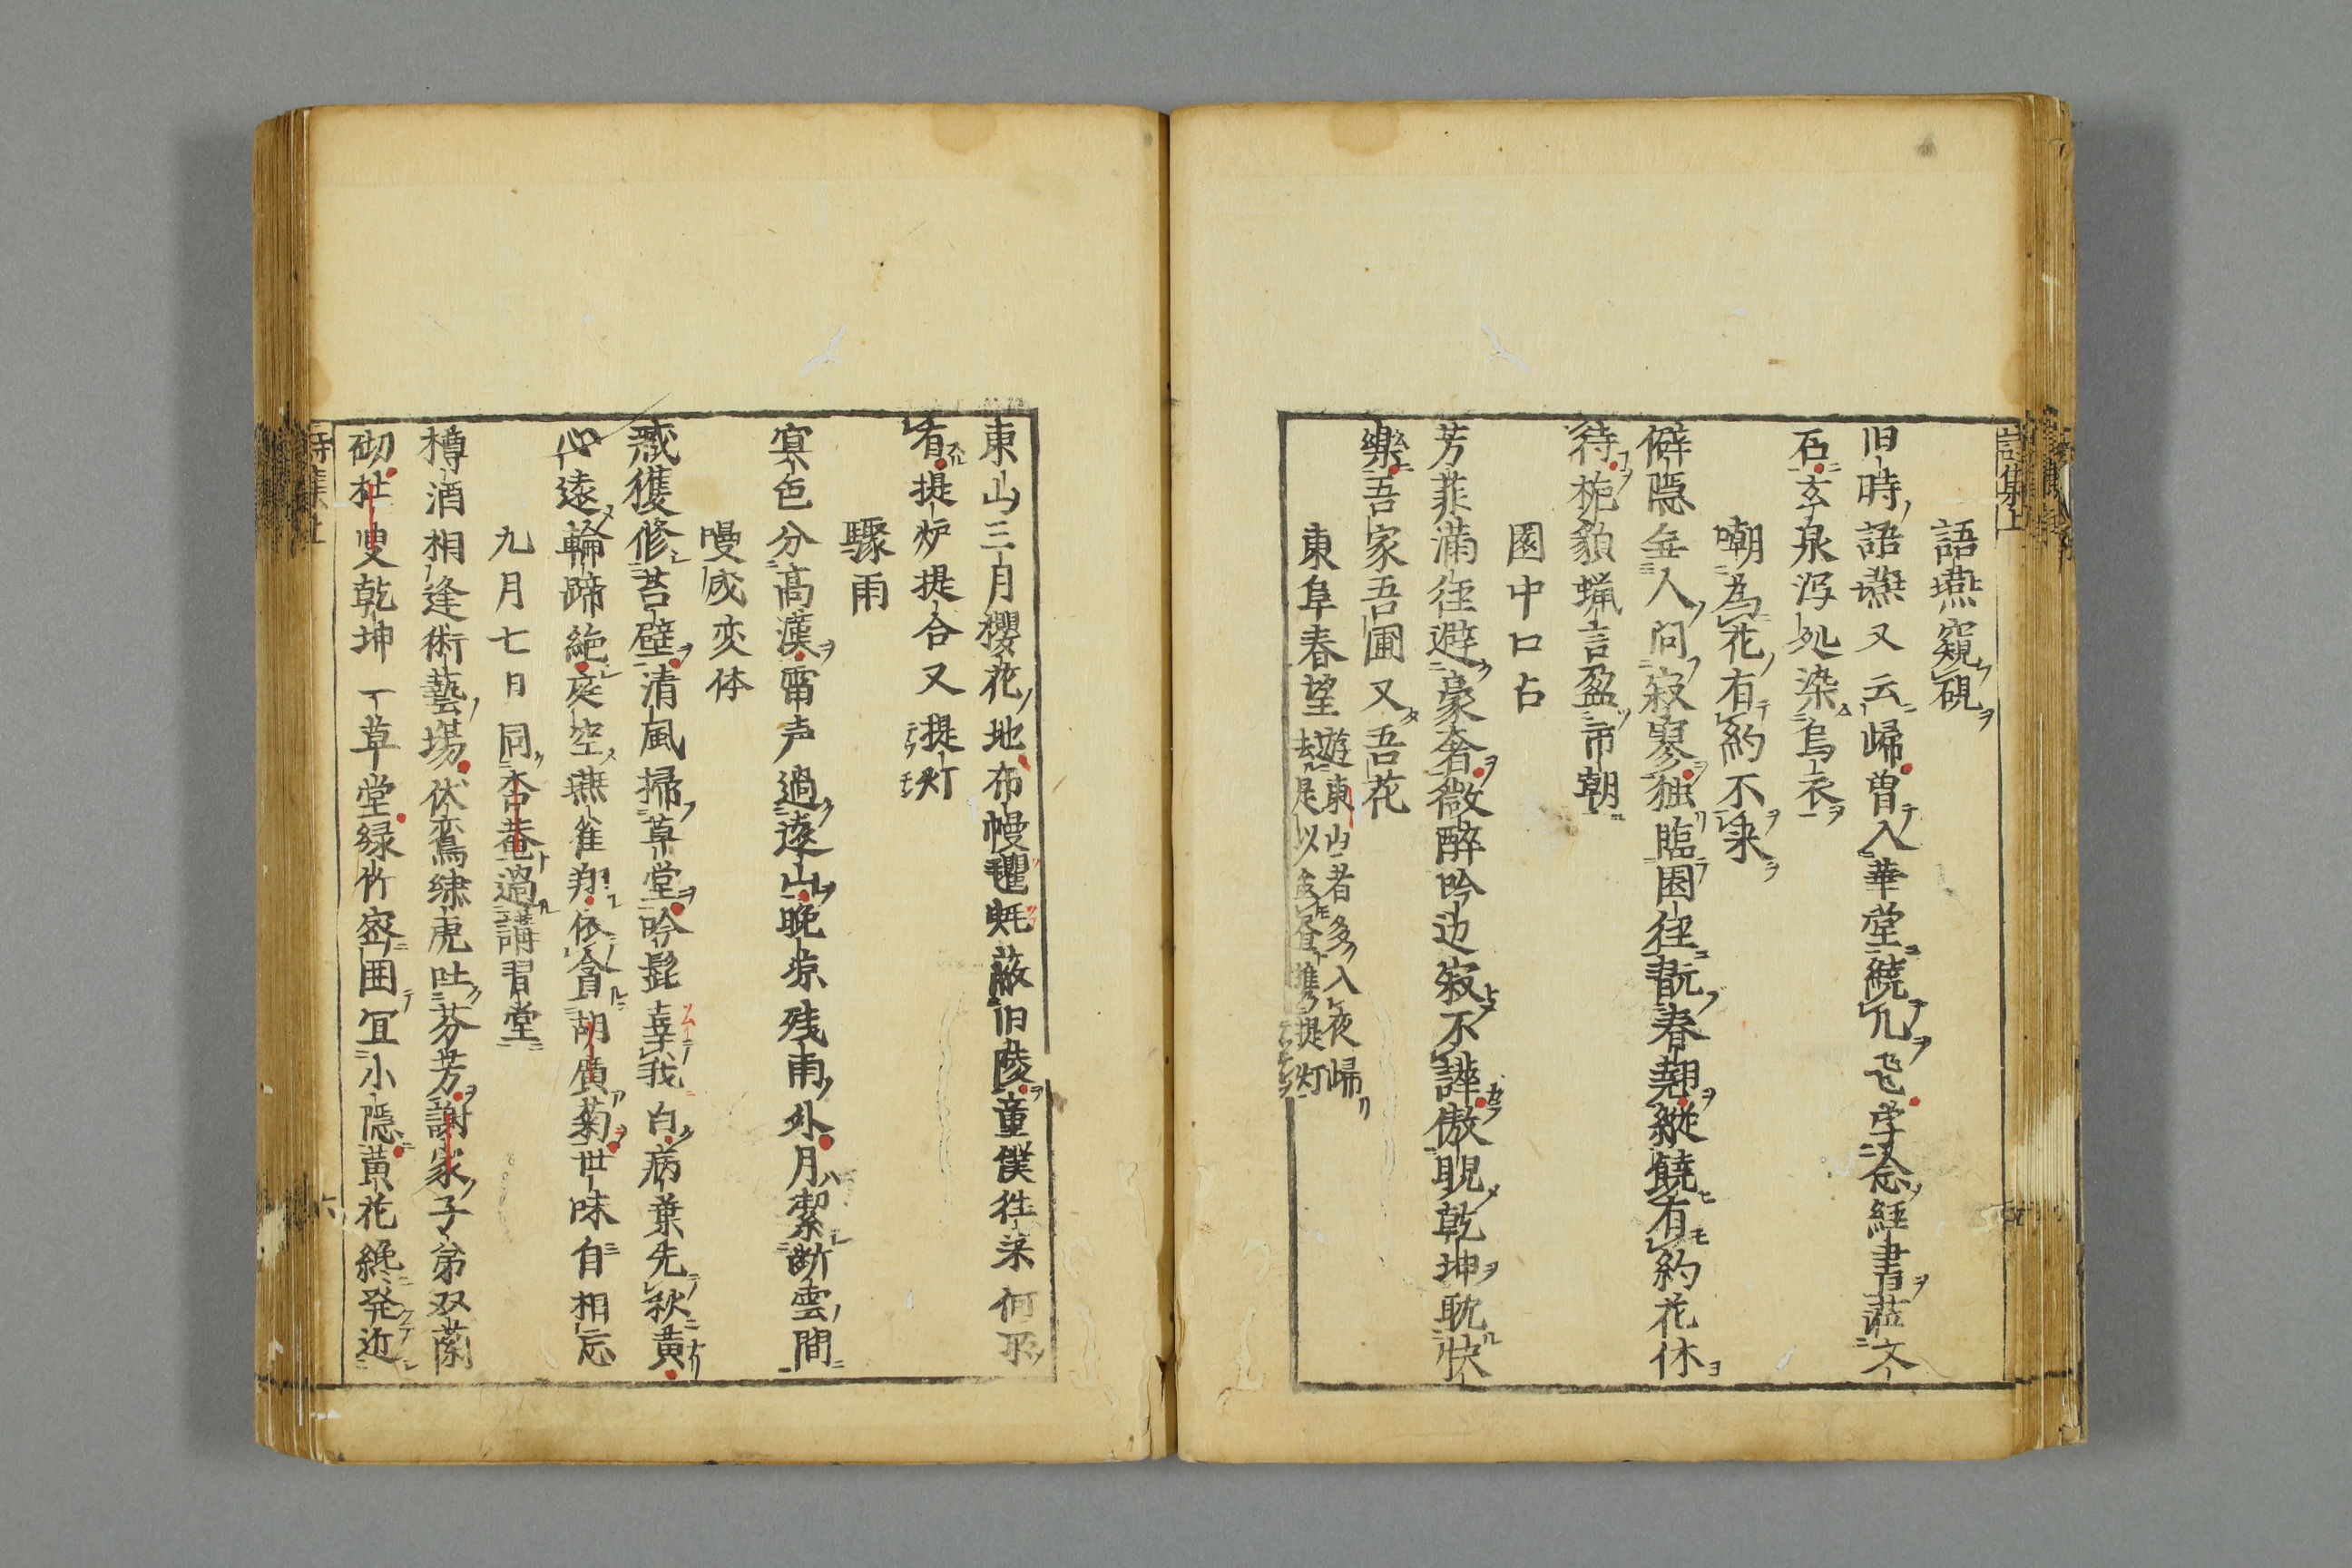 詩集上
語燕窺硯
旧時語燕又云帰曽入華堂繞几飛学念經書蓝文
石玄泉泻処染烏衣
嘲為花有約不来
僻隠無人問寂寥独臨園径翫春翹縦饒有約花休
待施貌蝋言盈市朝
園中口占
芳菲満径避豪奢微醉吟边寂不譁傲睨乾坤耽快
樂吾家吾圃又吾花
東阜春望
遊東山者多入夜帰
去是以携提灯
東山三月櫻花地布幔氍毹蔽旧陵童僕往来何所
有提炉提合又提灯
驟雨
寞色分高漢雷声過遠山晩凉残雨外月潔断雲間
嘎成変体
臧獲修苔壁清風掃草堂吟髭幸我白病葉先秋黄
心遠輪蹄絶庭空燕雀翔依貪胡廣菊世味自相忘
九月七日同杏菴過講習堂
樽酒相逢術藝場伏鸞綉虎吐芬芳謝家子弟双蘭
砌杜叟乾坤一草堂緑竹密囲冝小隠黄花纔発近
詩集上
六